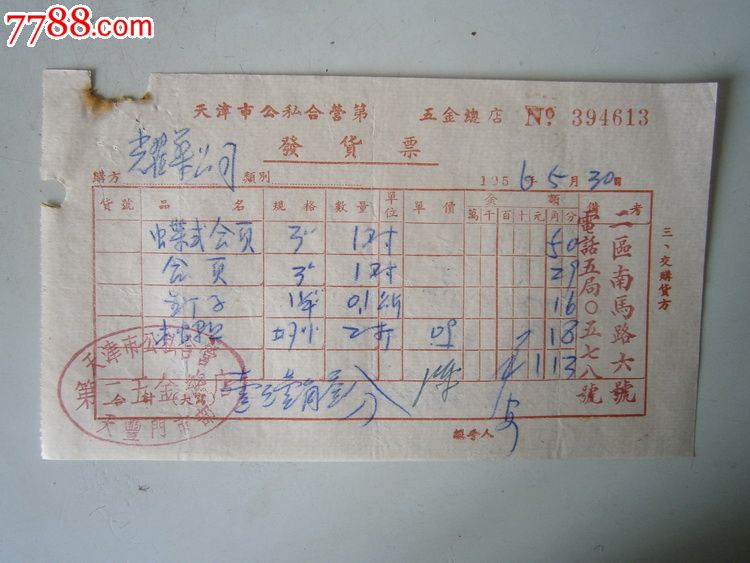 7788.com
天津市公私合營第 五金總店 № 394613
發貨票
購方 公司 類別 1956年5月30日
貨號 品名 規格 數量 單位 單價 金額 備考
萬 千 百 十 元 角 分
蝶式合頁 3" 1 对 50
合頁 3" 1 对 29
釘子 1" 0.1 斤 16
2 18
1 13
合計(大寫) 壹元壹角叁分
經手人
二區南馬路六號
電話五局〇五七八號
三、交購貨方
天津市公私合營
第二五金總店
天豐門市部